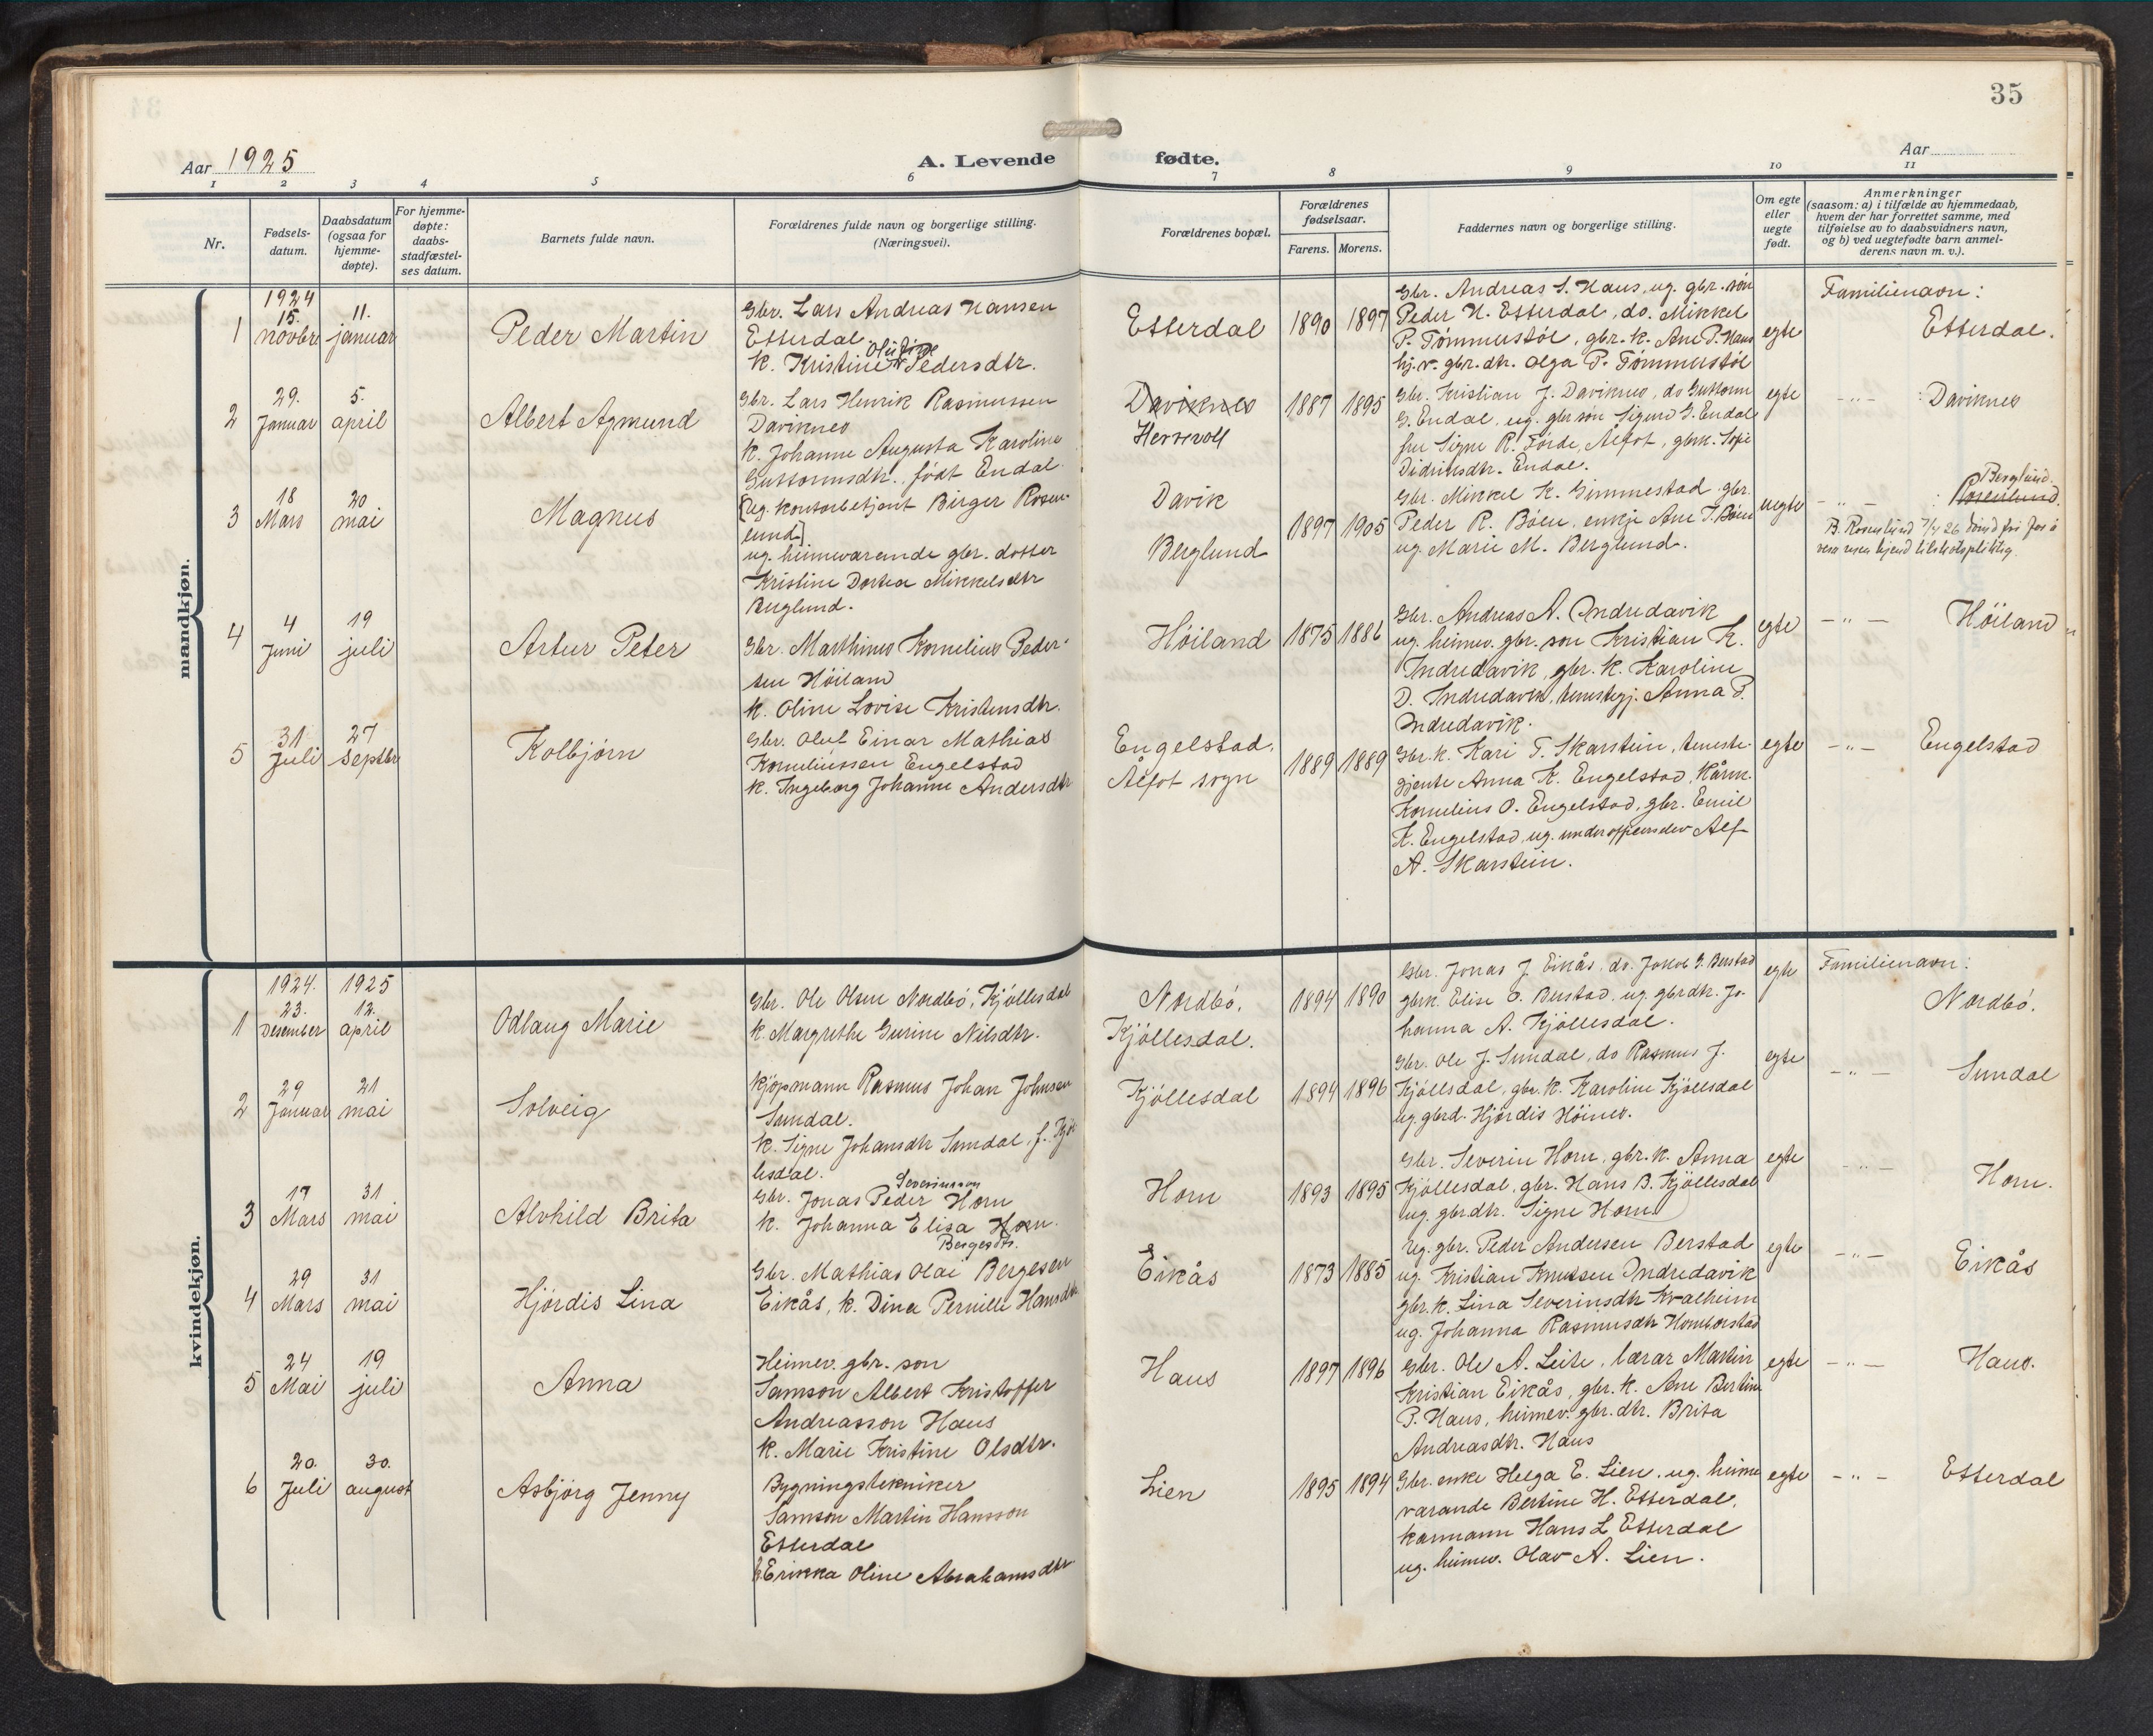 35
Aar 1925
A. Levende fødte.
Aar
1 2 3 4 5 6 7 8 9 10 11
Nr.
Fødsels-
datum.
Daabsdatum
(ogsaa for
hjemme-
døpte).
For hjemme-
døpte:
daabs-
stadfæstel-
ses datum.
Barnets fulde navn.
Forældrenes fulde navn og borgerlige stilling.
(Næringsvei).
Forældrenes bopæl.
Forældrenes
fødselsaar.
Farens. Morens.
Faddernes navn og borgerlige stilling.
Om egte
eller
uegte
født.
Anmerkninger
(saasom: a) i tilfælde av hjemmedaab,
hvem der har forrettet samme, med
tilføielse av to daabsvidners navn,
og b) ved uegtefødte barn anmel-
derens navn m. v.).
mandkjøn.
1
1924
15.
novbr
11.
januar
Peder Martin
Gbr. Lars Andreas Hansen
Etterdal
Olufine
k. Kristine Pedersdtr.
Etterdal
1890 1897
Gbr. Andreas S. Haus, ug. gbr. søn
Peder H. Etterdal, do. Mikkel
P. Tømmerstøl, gbr. k. Ane P. Haus
hj.v. gbr. dtr. Olga P. Tømmerstøl
egte
Familienavn:
Etterdal.
2
29.
Januar
5.
april
Albert Agmund
Gbr. Lars Henrik Rasmussen
Daviknes
k. Johanne Augusta Karoline
Guttormsdtr., født Endal
Daviknes
Hessevoll
1887 1895
Gbr. Kristian J. Daviknes, do Guttorm
G. Endal, ug. gbr søn Sigurd G. Endal
fru Signe R. Førde, Ålfot, gbrk. Sofie
Didriksdtr. Endal.
egte
-"- : Daviknes
3
18
Mars
20
mai
Magnus
[Ug. kontorbetjent Birger Rosen-
lund]
ug. heimeverende gbr. dotter
Kristine Dortea Mikkelsdtr
Berglund.
Davik
Berglund
1897 1905
Gbr. Mikkel K. Gimmestad, gbr.
Peder R. Bøen, enkje Ane T. Bøen
ug. Marie M. Berglund.
uegte
Berglund.
-"- : Rosenlund.
B. Rosenlund 7/4 26 dømd fri for å
vera men kjend tilskotspliktig.
4
4
Juni
19
juli
Artur Peter
Gbr. Marthines Kornelius Peder-
sen Høiland
k. Oline Lovise Kristensdtr.
Høiland
1875 1886
Gbr. Andreas A. Indredavik
ug. heimev. gbr. son Kristian K.
Indredavik, gbr. k. Karoline
D. Indredavik, tenestegj. Anna P.
Indredavik.
egte
-"- Høiland
5
31
Juli
27
Septbr
Kolbjørn
Gbr. Oluf Einar Mathias
Korneliussen Engelstad
k. Ingeborg Johanne Andersdtr
Engelstad,
Ålfot sogn
1889 1889
Gbr. k. Kari T. Skarstein, teneste-
gjente Anna K. Engelstad, kårm.
Kornelius O. Engelstad, gbr. Emil
K. Engelstad, ug. underoffiserselev Alf
A. Skarstein.
egte
-"- Engelstad
kvindekjøn.
1
1924.
23.
Desember
1925
12.
april
Odlaug Marie
Gbr. Ole Olsen Nordbø, Kjøllesdal
k. Margrethe Gurine Nilsdtr.
Nordbø,
Kjøllesdal.
1894 1890
Gbr. Jonas J. Eikås, do. Jakob I. Berstad
gbrk. Elise O. Berstad, ug. gbrdtr. Jo-
hanna A. Kjøllesdal.
egte
Familienavn:
Nordbø.
2
29
Januar
21
mai
Solveig
Kjøpmann Rasmus Johan Johnsen
Sundal.
k. Signe Johansdtr Sundal, f. Kjøl
lesdal.
Kjøllesdal
1894 1896
Gbr. Ole J. Sundal, do Rasmus J.
Kjøllsdal, gbr. k. Karoline Kjøllsdal
ug. gbrd. Hjørdis Høines.
egte
-"- Sundal
3
17
Mars
31
mai
Alvhild Brita
Severinsson
Gbr. Jonas Peder Horn
k. Johanna Elisa Horn.
Bergesdtr.
Horn
1893 1895
Gbr. Severin Horn, gbr. k. Anna
Kjøllesdal, gbr. Hans B. Kjøllesdal
ug. gbrdtr. Signe Horn
egte
-"- Horn.
4
29
Mars
31
mai
Hjørdis Lina
Gbr. Mathias Olai Bergesen
Eikås, k. Dina Pernille Hansdtr
Eikås
1873 1885
Ug. gbr. Peder Andersen Berstad
ug. Kristian Knutsen Indredavik
gbr. k. Lina Severinsdtr Kvalheim
ug. Johanna Rasmusdtr Homborstad
egte
-"- Eikås
5
24
Mai
19
juli
Anna
Heimev. gbr. son
Samson Albert Kristoffer
Andreasson Haus
k. Marie Kristine Olsdtr.
Haus
1897 1896
Gbr. Ole A. Leite, lærar Martin
Kristian Eikås, gbr. k. Ane Bertine
P. Haus, heimev. gbr. dtr. Brita
Andreasdtr. Haus
egte
-"- Haus.
6
20.
Juli
30.
august
Asbjørg Jenny
Bygningstekniker
Samson Martin Hansson
Etterdal
k. Erikka Oline Abrahamsdtr
Lien
1895 1894
Gbr. enke Helga E. Lien, ug. heime
varande Bertine H. Etterdal,
karmann Hans L Etterdal
ug. heimev. Olav A. Lien.
egte
-"- Etterdal